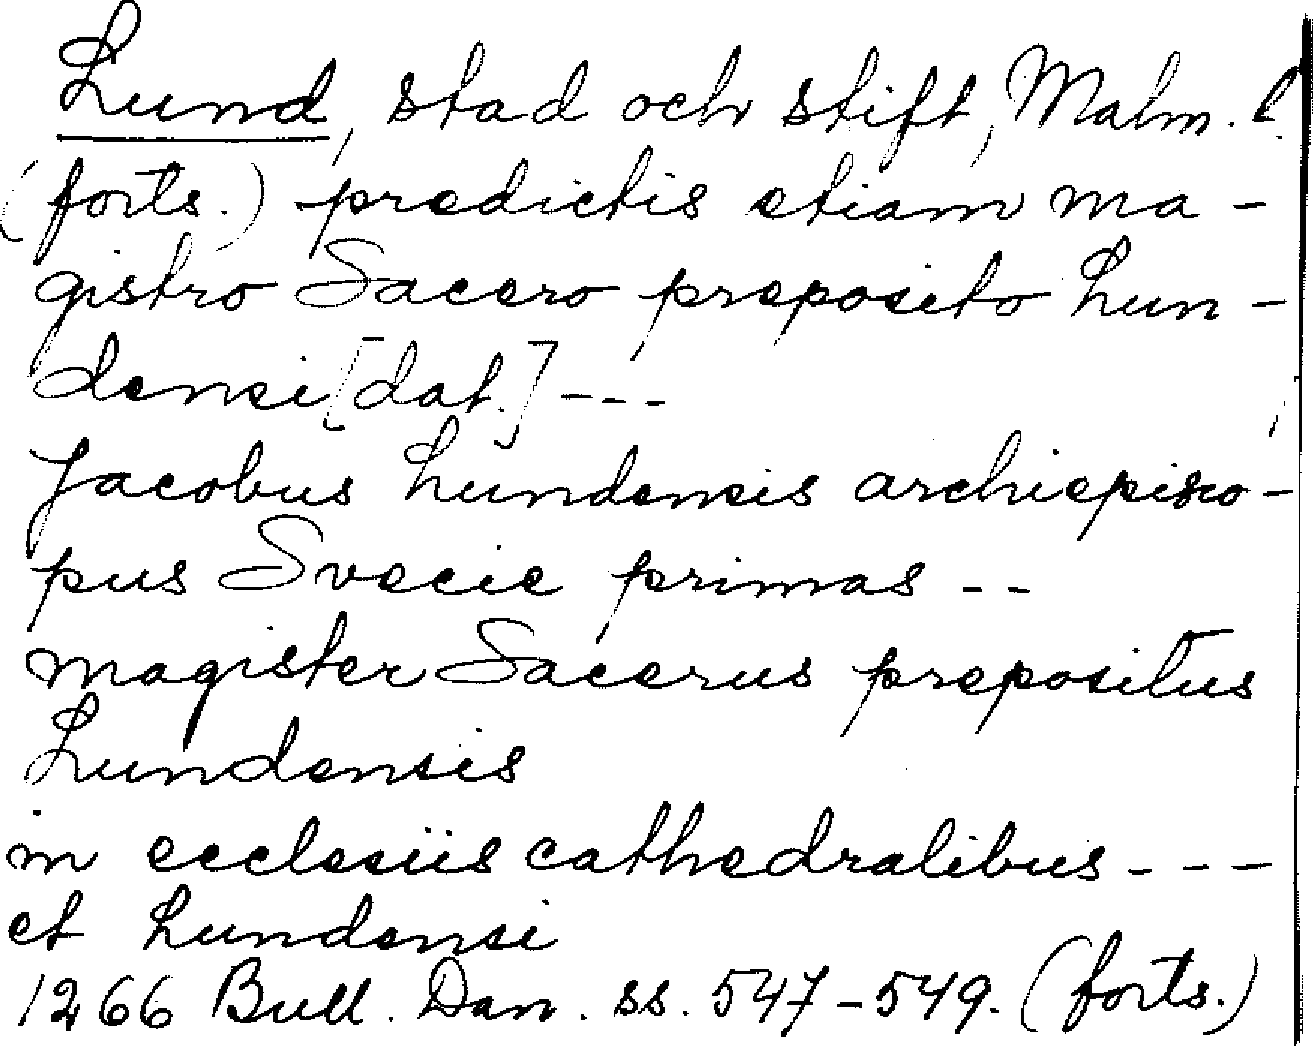 Lund, stad och stift, Malm. l.
(forts.) predictis etiam ma-
gistro Sacero preposito Lun-
densi [dat.] ---
Jacobus Lundensis archiepisco-
pus Svecie primas --
magister Sacerus prepositus
Lundensis
in ecclesiis cathedralibus ---
et Lundensi
1266 Bull. Dan. ss. 547-549. (forts.)